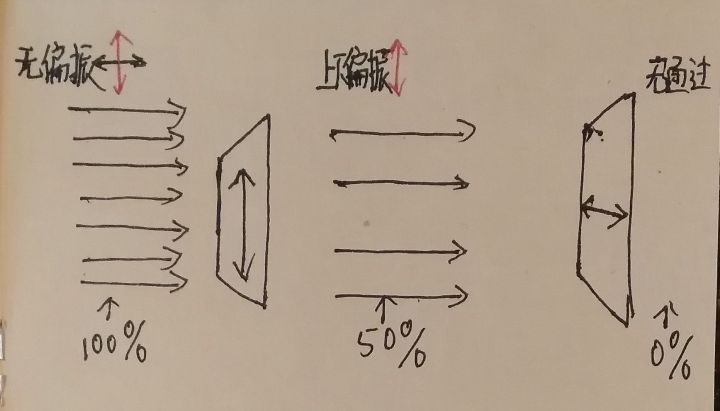 无偏振
上下偏振
无通过
100%
50%
0%